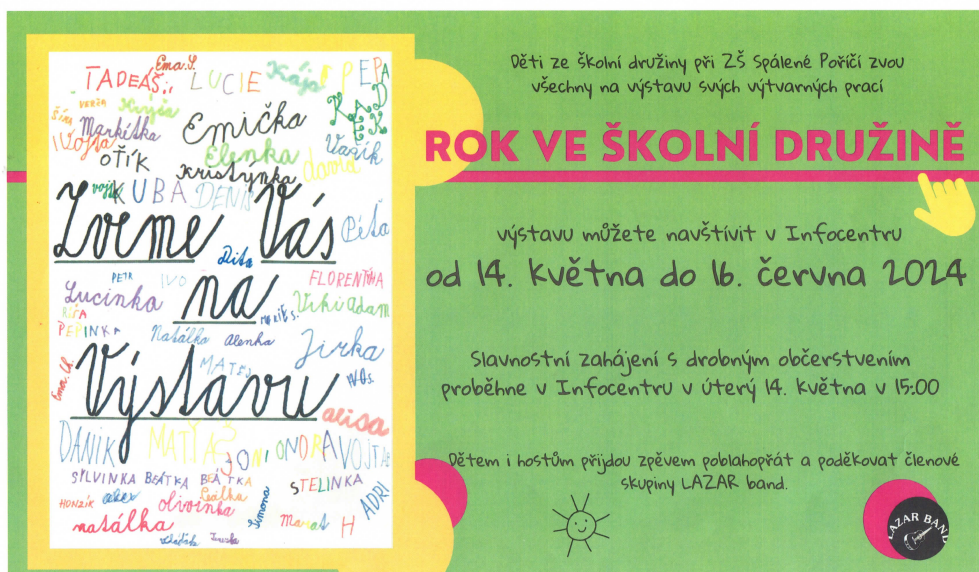 TADEÁŠ
Ema.S.
LUCIE
Kája
PEPA
KADEK
Markétka
Vojta
Emička
Vašík
OTÍK
Elenka
Kristýnka
KUBA
DENIS
Zveme Vás
Péťa
Dita
PETR
IVO
na
FLORENTÝNA
Lucinka
Viki
adam
PEPINKA
Natálka
alenka
Jirka
MATĚJ
Ema.Ch.
Výstavu
alisa
DANIK
MATYÁŠ
JONI
ONDRA
VOJTA
SYLVINKA
BEÁTKA
BEÁTKA
STELINKA
ADRI
HONZÍK
alex
olivinka
Simona
natálka
H
Děti ze školní družiny při ZŠ Spálené Poříčí zvou
všechny na výstavu svých výtvarných prací
ROK VE ŠKOLNÍ DRUŽINĚ
výstavu můžete navštívit v Infocentru
od 14. května do 16. června 2024
Slavnostní zahájení s drobným občerstvením
proběhne v Infocentru v úterý 14. května v 15:00
Dětem i hostům přijdou zpěvem poblahopřát a poděkovat členové
skupiny LAZAR band.
LAZAR BAND